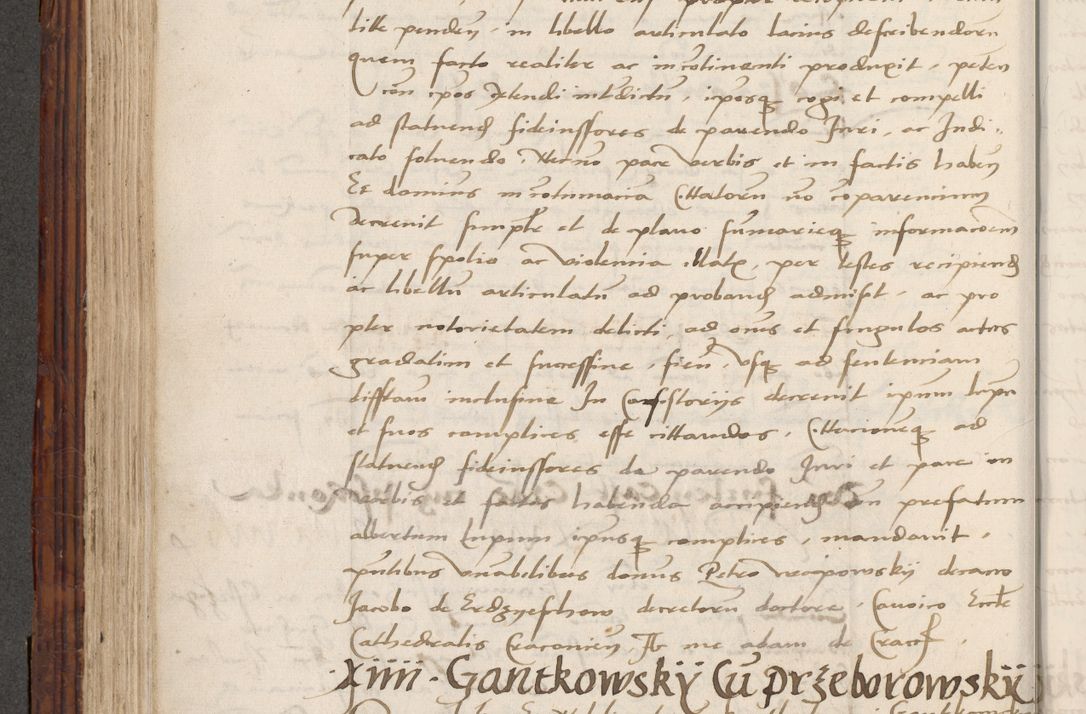 lite penden in libello articulato lacius describendorum
quem facto realiter ac incōtinenti produxit, peten
con ipos ipsosq cogi et compelli
ad statuend fideiussores de parendo Juri, ac Judi
cato solvendo, pace verbis et in factis haben
Et dominus in cōtumacia Cittatorū nō cōparencium
decrevit simplr et de plano sumarieq informacōem
super spolio ac violencia illata, per testes recipiend
ac libellū articulatū ad proband admisit, ac pro
pter notorietatem delicti, ad om̄s et singulos actus
gradatim et successive, fien, usq ad sentenciam
diffitivam inclusive In Consistoriis decrevit ipsum lupum
et suos complices esse cittandos, Cittacioneq ad
statuend fideiussores de parendo Juri et pace in
verbis et factis habenda in prefatum
albertum Lupum ipsusq complices, mandavit,
pn̄tibus venabilibus domīs Petro decano
Jacobo de Erdzyeschow decretorū doctore, Canoico Eccle
Cathedralis Craconien, Et me adam de
·Xiiii· Gantkowskÿ Cū przeborowskÿ